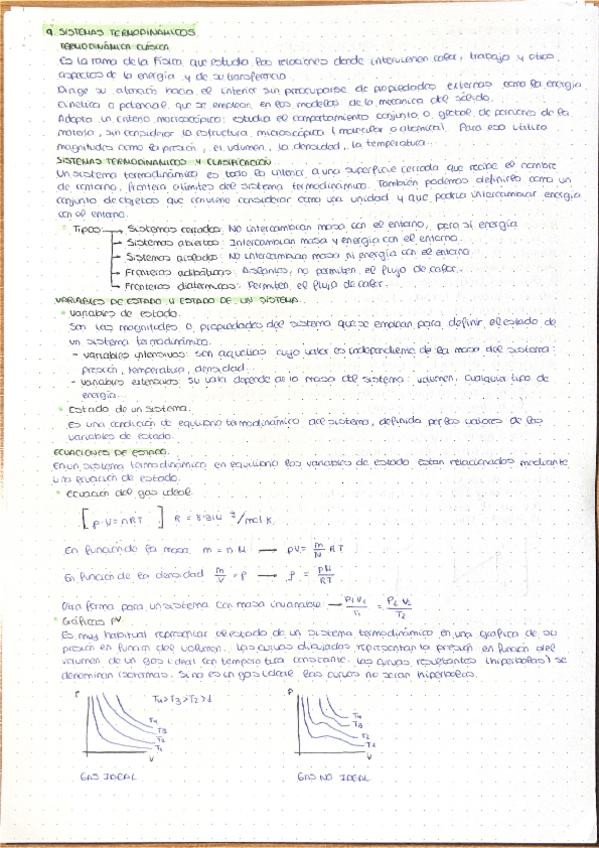 9. SISTEMAS TERMODINÁMICOS
TERMODINÁMICA CLÁSICA
Es la rama de la Física que estudia las relaciones donde intervienen calor, trabajo y otros
aspectos de la energía y de su transferencia.
Dirige su atención hacia el interior sin preocuparse de propiedades externas como la energía
cinética o potencial, que se emplean en los modelos de la mecánica del sólido.
Adopta un criterio macroscópico: estudia el comportamiento conjunto o global de porciones de la
materia, sin considerar la estructura microscópica (molecular o atómica). Para eso utiliza
magnitudes como la presión, el volumen, la densidad, la temperatura...
SISTEMAS TERMODINÁMICOS Y CLASIFICACIÓN
Un sistema termodinámico es todo lo interior a una superficie cerrada que recibe el nombre
de contorno, frontera o límites del sistema termodinámico. También podemos definirlo como un
conjunto de objetos que conviene considerar como una unidad y que podría intercambiar energía
con el entorno.
Tipos → Sistemas cerrados: No intercambian masa con el entorno, pero sí energía
→ Sistemas abiertos: Intercambian masa y energía con el entorno.
→ Sistemas aislados: No intercambian masa ni energía con el entorno
→ Fronteras adiabáticas: Aislantes, no permiten el flujo de calor.
→ Fronteras diatérmicas: Permiten el flujo de calor.
VARIABLES DE ESTADO Y ESTADO DE UN SISTEMA.
• Variables de estado.
Son las magnitudes o propiedades del sistema que se emplean para definir el estado de
un sistema termodinámico.
- Variables intensivas: son aquellas cuyo valor es independiente de la masa del sistema:
presión, temperatura, densidad...
- Variables extensivas: su valor depende de la masa del sistema: volumen, cualquier tipo de
energía...
• Estado de un sistema.
Es una condición de equilibrio termodinámico del sistema, definida por los valores de las
variables de estado.
ECUACIONES DE ESTADO.
En un sistema termodinámico en equilibrio las variables de estado están relacionadas mediante
una ecuación de estado.
• Ecuación del gas ideal
[p·V = nRT] R = 8'314 J/mol K
En función de la masa m = n·M → pV = m/M RT
En función de la densidad m/V = ρ → ρ = pM/RT
Otra forma para un sistema con masa invariable → P1 V1/T1 = P2 V2/T2
• Gráficas PV
Es muy habitual representar el estado de un sistema termodinámico en una gráfica de su
presión en función del volumen. Las curvas dibujadas representan la presión en función del
volumen de un gas ideal con temperatura constante. Las curvas resultantes (hipérbolas) se
denominan isotermas. Si no es un gas ideal las curvas no serán hipérbolas.
P T4 > T3 > T2 > 1 T4 T3 T2 T1 V
P T4 T3 T2 T1 V
GAS IDEAL GAS NO IDEAL